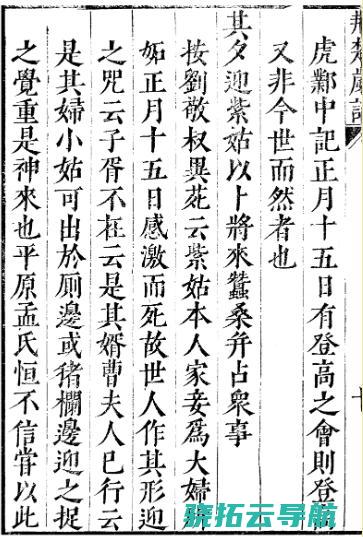 虎鄴中記正月十五日有登高之會則登
又非今世而然者也
其夕迎紫姑以卜將來蠶桑并占衆事
按劉敬叔異苑云紫姑本人家妾爲大婦
妬正月十五日感激而死故世人作其形迎
之咒云子胥不在云是其婿曹夫人已行云
是其婦小姑可出於厠邊或猪欄邊迎之捉
之覺重是神來也平原孟氏恒不信甞以此
骁拓云导航